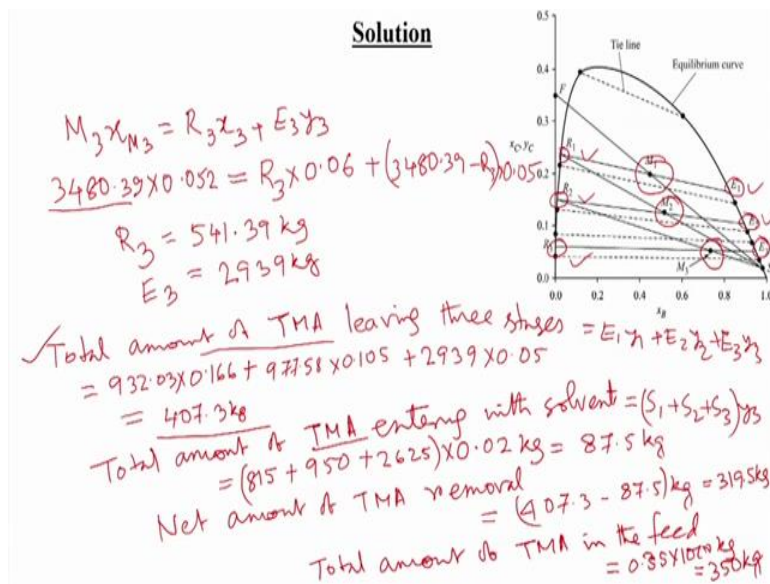 Solution
M3xM3 = R3x3 + E3y3
3480.39×0.052 = R3×0.06 + (3480.39-R3)×0.05
R3 = 541.39 kg
E3 = 2939 kg
✓Total amount of TMA leaving three stages = E1y1+E2y2+E3y3
= 932.03×0.166 + 977.58×0.105 + 2939×0.05
= 407.3 kg
Total amount of TMA entering with solvent = (S1+S2+S3)y3
= (815 + 950 + 2625)×0.02 kg = 87.5 kg
Net amount of TMA removal
= (407.3 - 87.5) kg = 319.5 kg
Total amount of TMA in the feed
= 0.35×1000 kg
= 350 kg
0.5
0.4
0.3
0.2
0.1
0.0
xC, yC
Tie line
Equilibrium curve
F
R1
M1
E1
R2
M2
E2
R3
M3
E3
0.0 0.2 0.4 0.6 0.8 1.0
xB